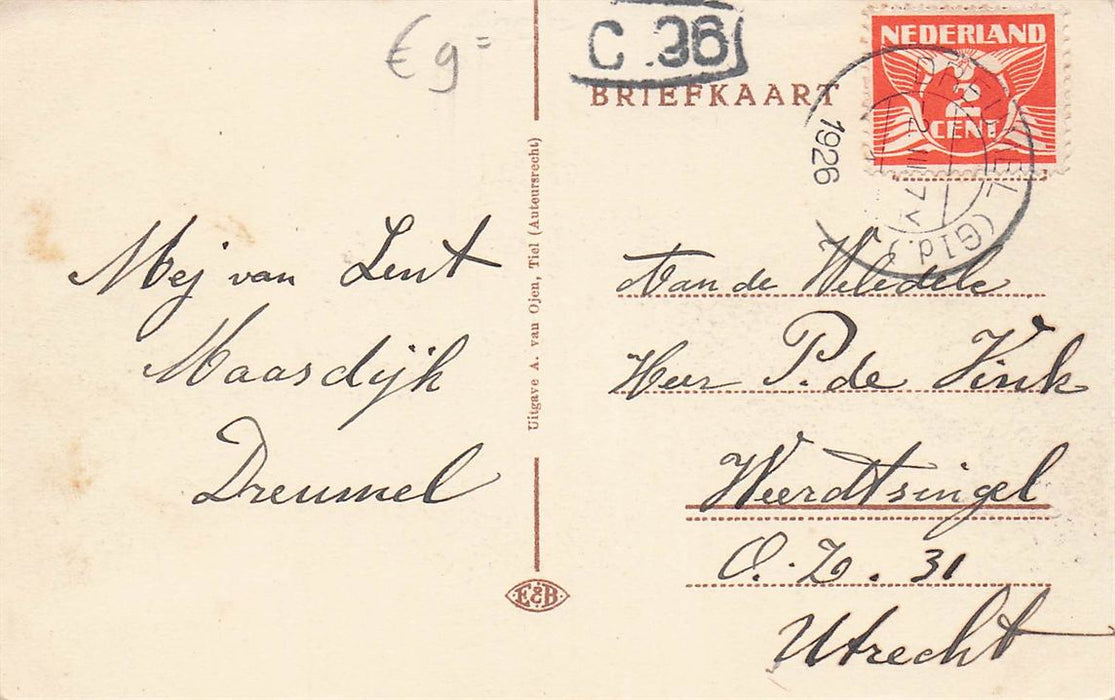 € 9=
C .36
BRIEFKAART
NEDERLAND
2½
CENT
DREUMEL (Gld.)
1926
Mej van Lent
Maasdijk
Dreumel
Uitgave A. van Ojen, Tiel (Auteursrecht)
E&B
Aan de Weledele
Heer P. de Vink
Weerdtsingel
O.Z. 31
Utrecht